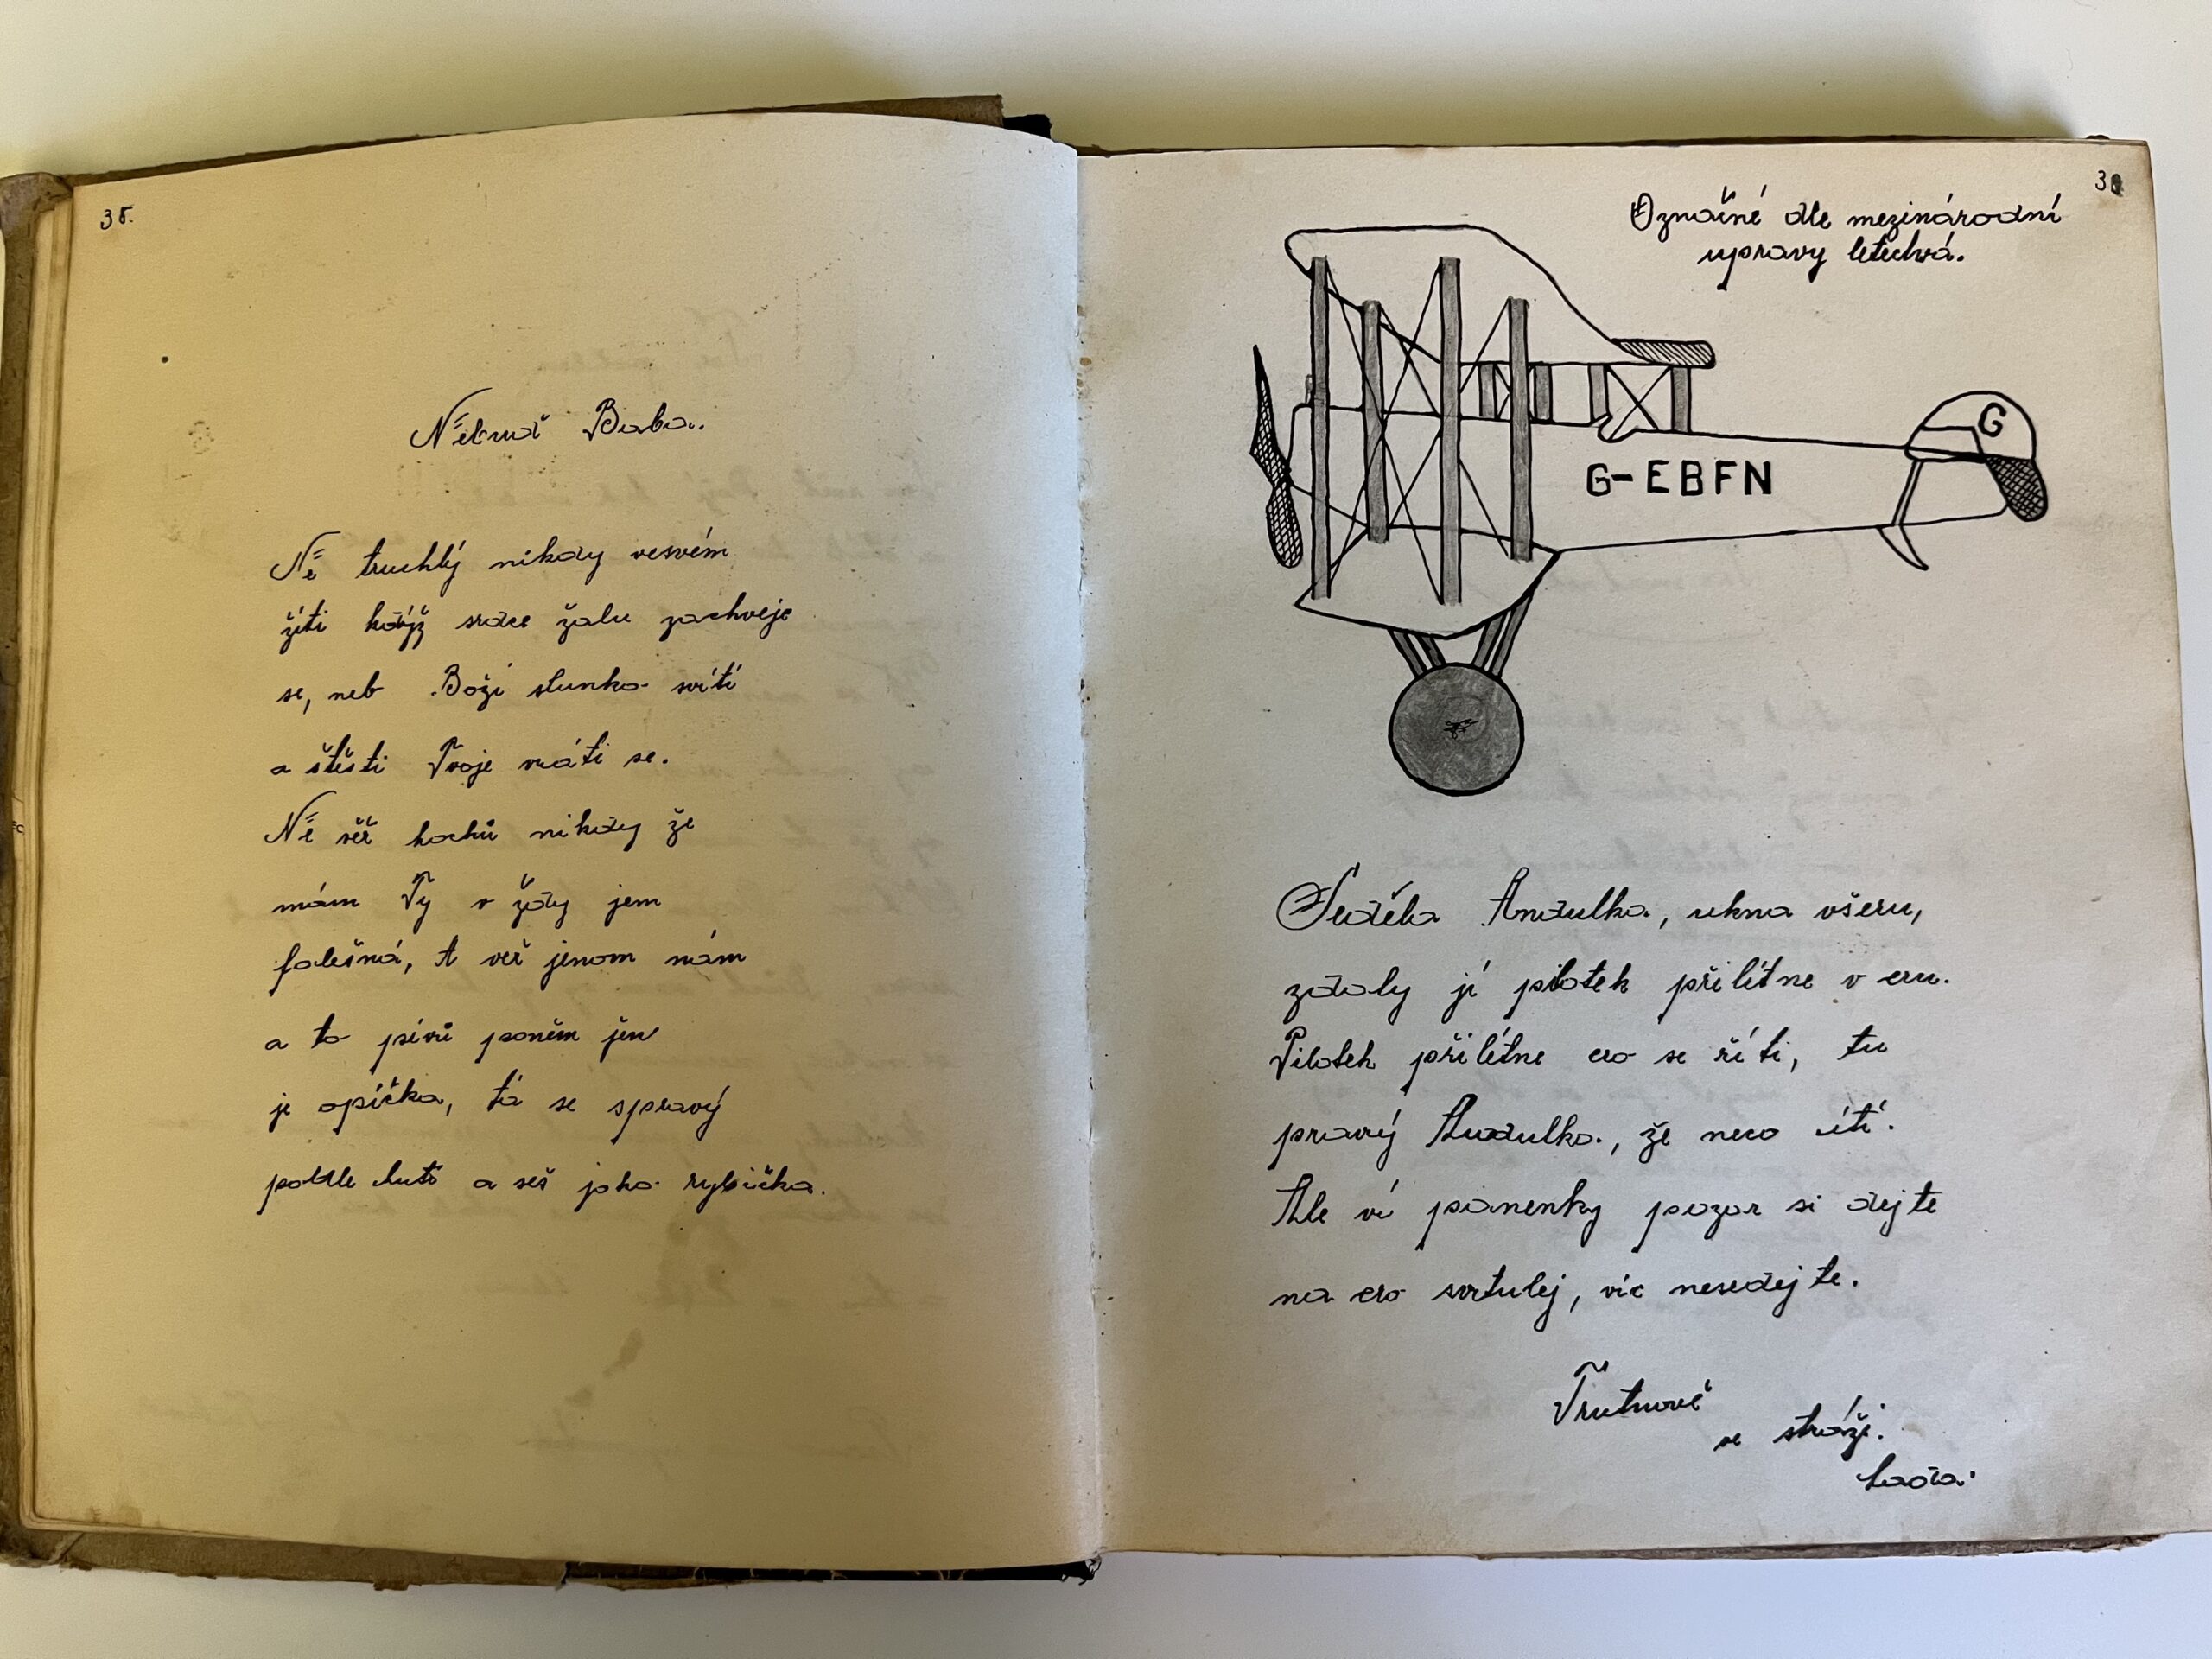 38.
Něbruč Baba.
Ně truchlý nikdy vesvém
žíti když srdce žalu zachveje
se, neb Boží slunko svítí
a štěsti Tvoje vráti se.
Ně věř hochů nikdy že
mám Ty v ždy jem
falešná, A veř jenom nám
a to pívů poněm jen
je opíčka, tá se spravý
podle chuti a seš jako rybička.
Označné dle mezinárodní
upravy letectvá.
G
G-EBFN
Seděla Andulka, ukna všeru,
zdaly jí pilotek přilítne v eru.
Pilotek přilítne ero se řítí, tu
pravý Andulka, že neco cítí.
Ale ví panenky pozor si dejte
na ero svrtulej, víc nesedejte.
Trutnově
ve stráži.
Laďa.